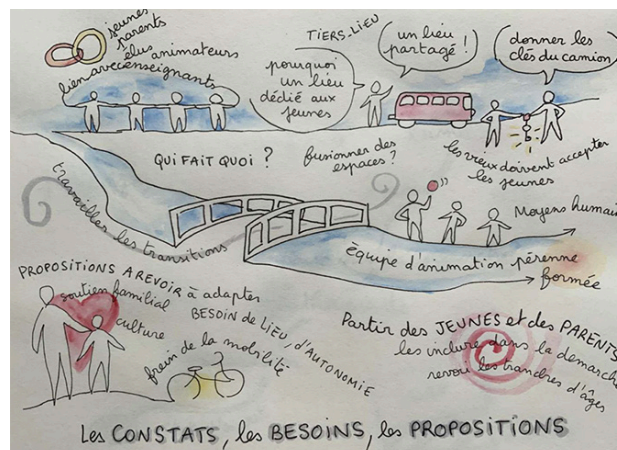 jeunes
parents
élus animateurs
lien avec enseignants
TIERS-LIEU
pourquoi
un lieu
dédié aux
jeunes
un lieu
partagé !
donner les
clés du camion
QUI FAIT QUOI ?
fusionner des
espaces ?
les vieux doivent accepter
les jeunes
travailler les transitions
Moyens humain
Équipe d'animation pérenne
formée
PROPOSITIONS A REVOIR à adapter
soutien familial
culture
BESOIN de LIEU, d'AUTONOMIE
frein de la mobilité
Partir des JEUNES et des PARENTS
les inclure dans la démarche
revoir les tranches d'âges
Les CONSTATS, les BESOINS, les PROPOSITIONS